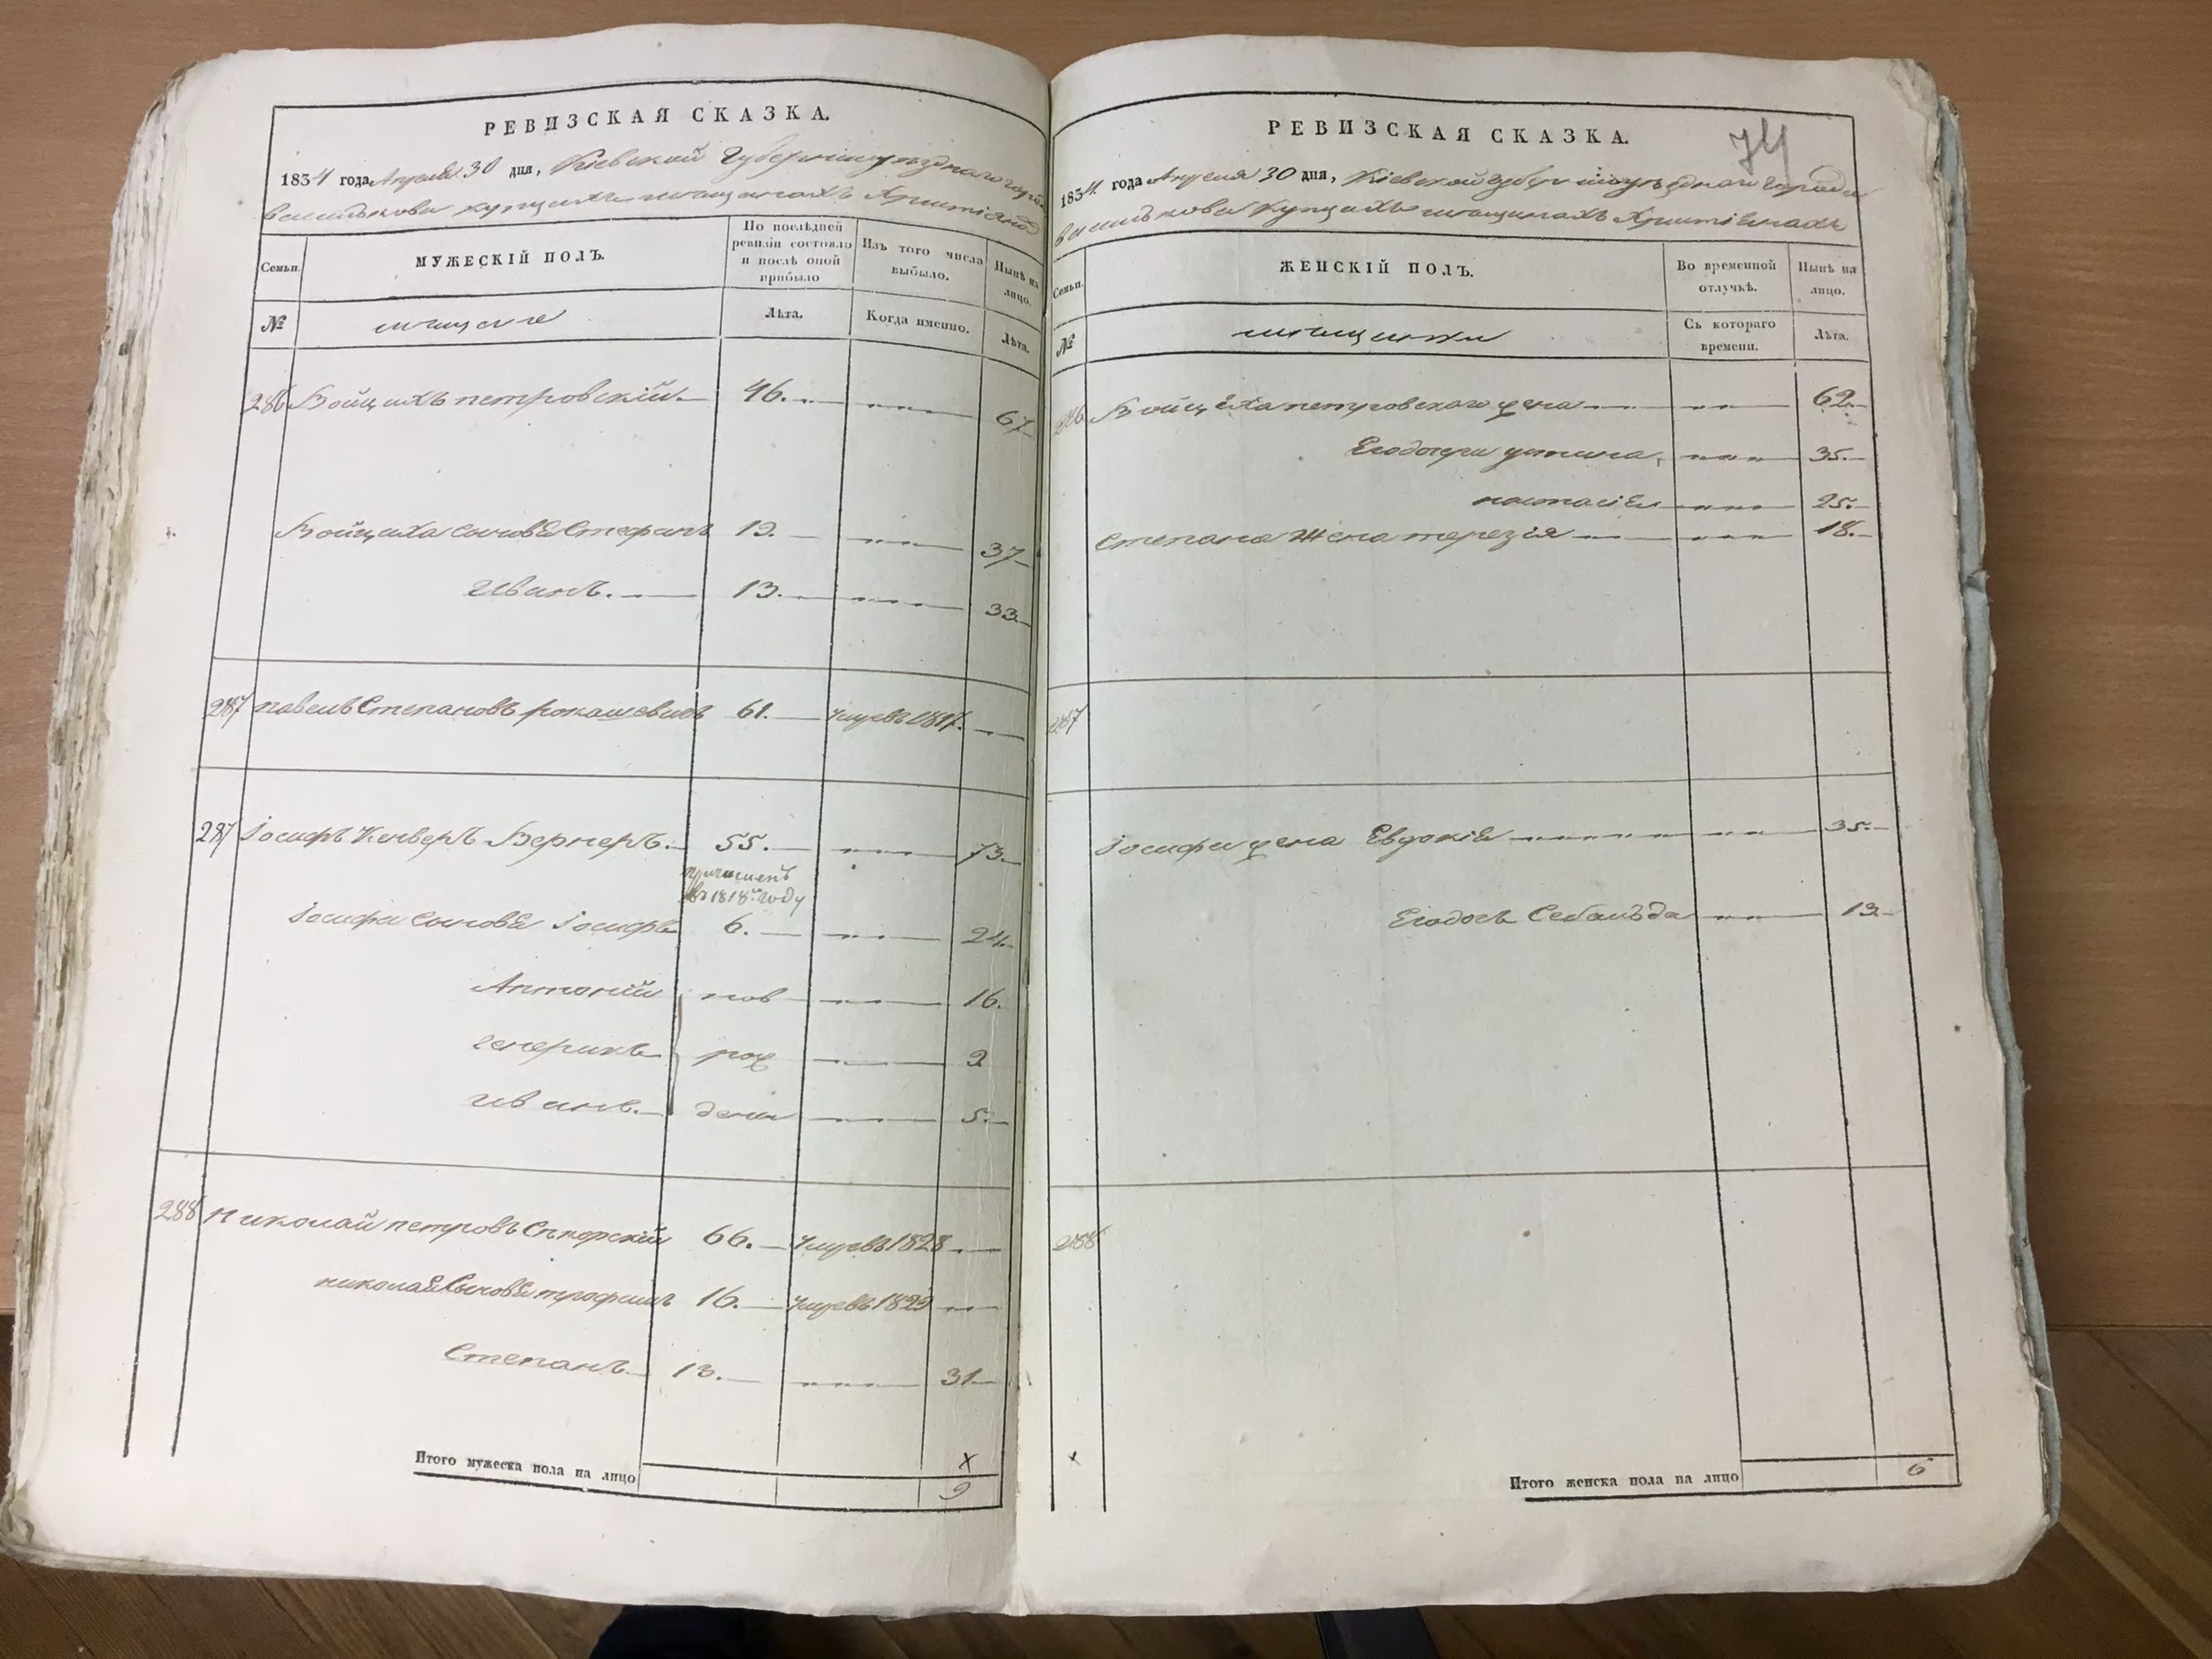 РЕВИЗСКАЯ СКАЗКА.
1834 года Апреля 30 дня, Кіевской Губерніи уезднаго города
Василькова купцахъ мещанахъ Христіянахъ
Семьи.
МУЖЕСКІЙ ПОЛЪ.
По послѣдней ревизіи состояло и послѣ оной прибыло
Изъ того числа выбыло.
Нынѣ на лицо.
№
мещане
Лѣта.
Когда именно.
Лѣта.
286 Войцихъ петровскій 46. 67
Войциха сыновЯ Стефанъ 19. 37
Иванъ. 13. 33
287 павелъ Степановъ рокашевичъ 61. умре въ 1817.
287 Іосифъ Кенверъ Вернеръ. 55. 73
причисленъ
въ 1818м году
Іосифа сыновЯ Іосифъ 6. 24
Антоній нов 16.
генерикъ рож 9
иванъ. дени 5.
288 Николай петровъ Сикорскій 66. умре въ 1828
николая СыновЯ трофимъ 16. умре въ 1829
Степанъ 13. 31
Х
Итого мужеска пола на лицо 9
РЕВИЗСКАЯ СКАЗКА.
74
1834 года Апреля 30 дня, Кіевской губерніи уезднаго города
Василькова Купцахъ мещанахъ Христіянахъ
Семьи.
ЖЕНСКІЙ ПОЛЪ.
Во временной отлучкѣ.
Нынѣ на лицо.
№
мещанки
Съ котораго времени.
Лѣта.
286 Войциха петровского жена 62
Его дочери устина, 35.
настасія 25.
степана Жена терезія 18.
287
Іосифа жена Евдокія 35.
Его дочь 13
288
х
Итого женска пола на лицо 6